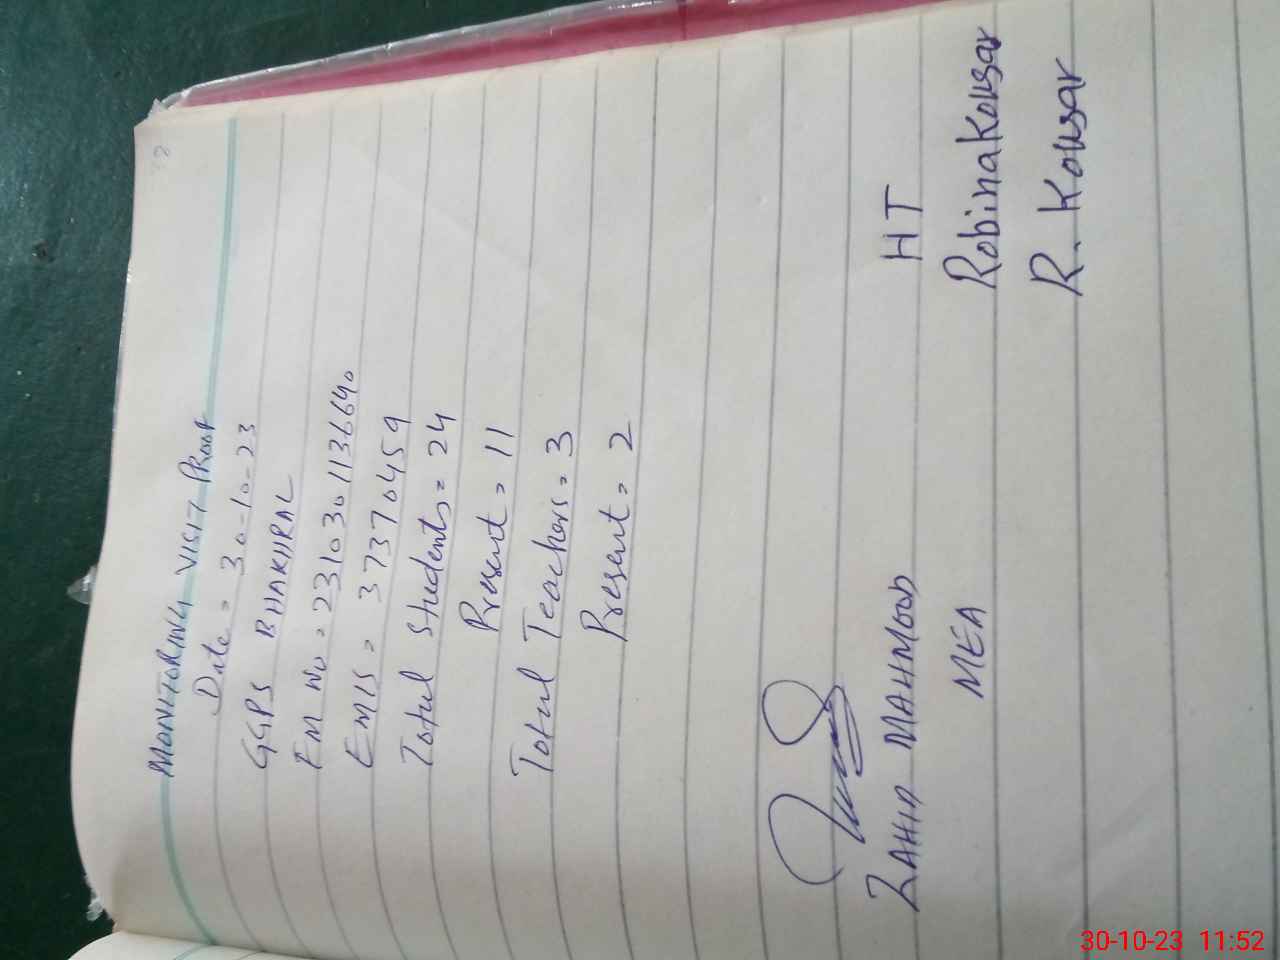 MONITORING VISIT PROOF
Date = 30-10-23
GGPS BHAKHRAL
FM No = 2310301136640
EMIS = 37370459
Total Students = 24
Present = 11
Total Teachers = 3
Present = 2
ZAHID MAHMOOD
MEA
HT
Robina Kousar
R. Kousar
30-10-23 11:52